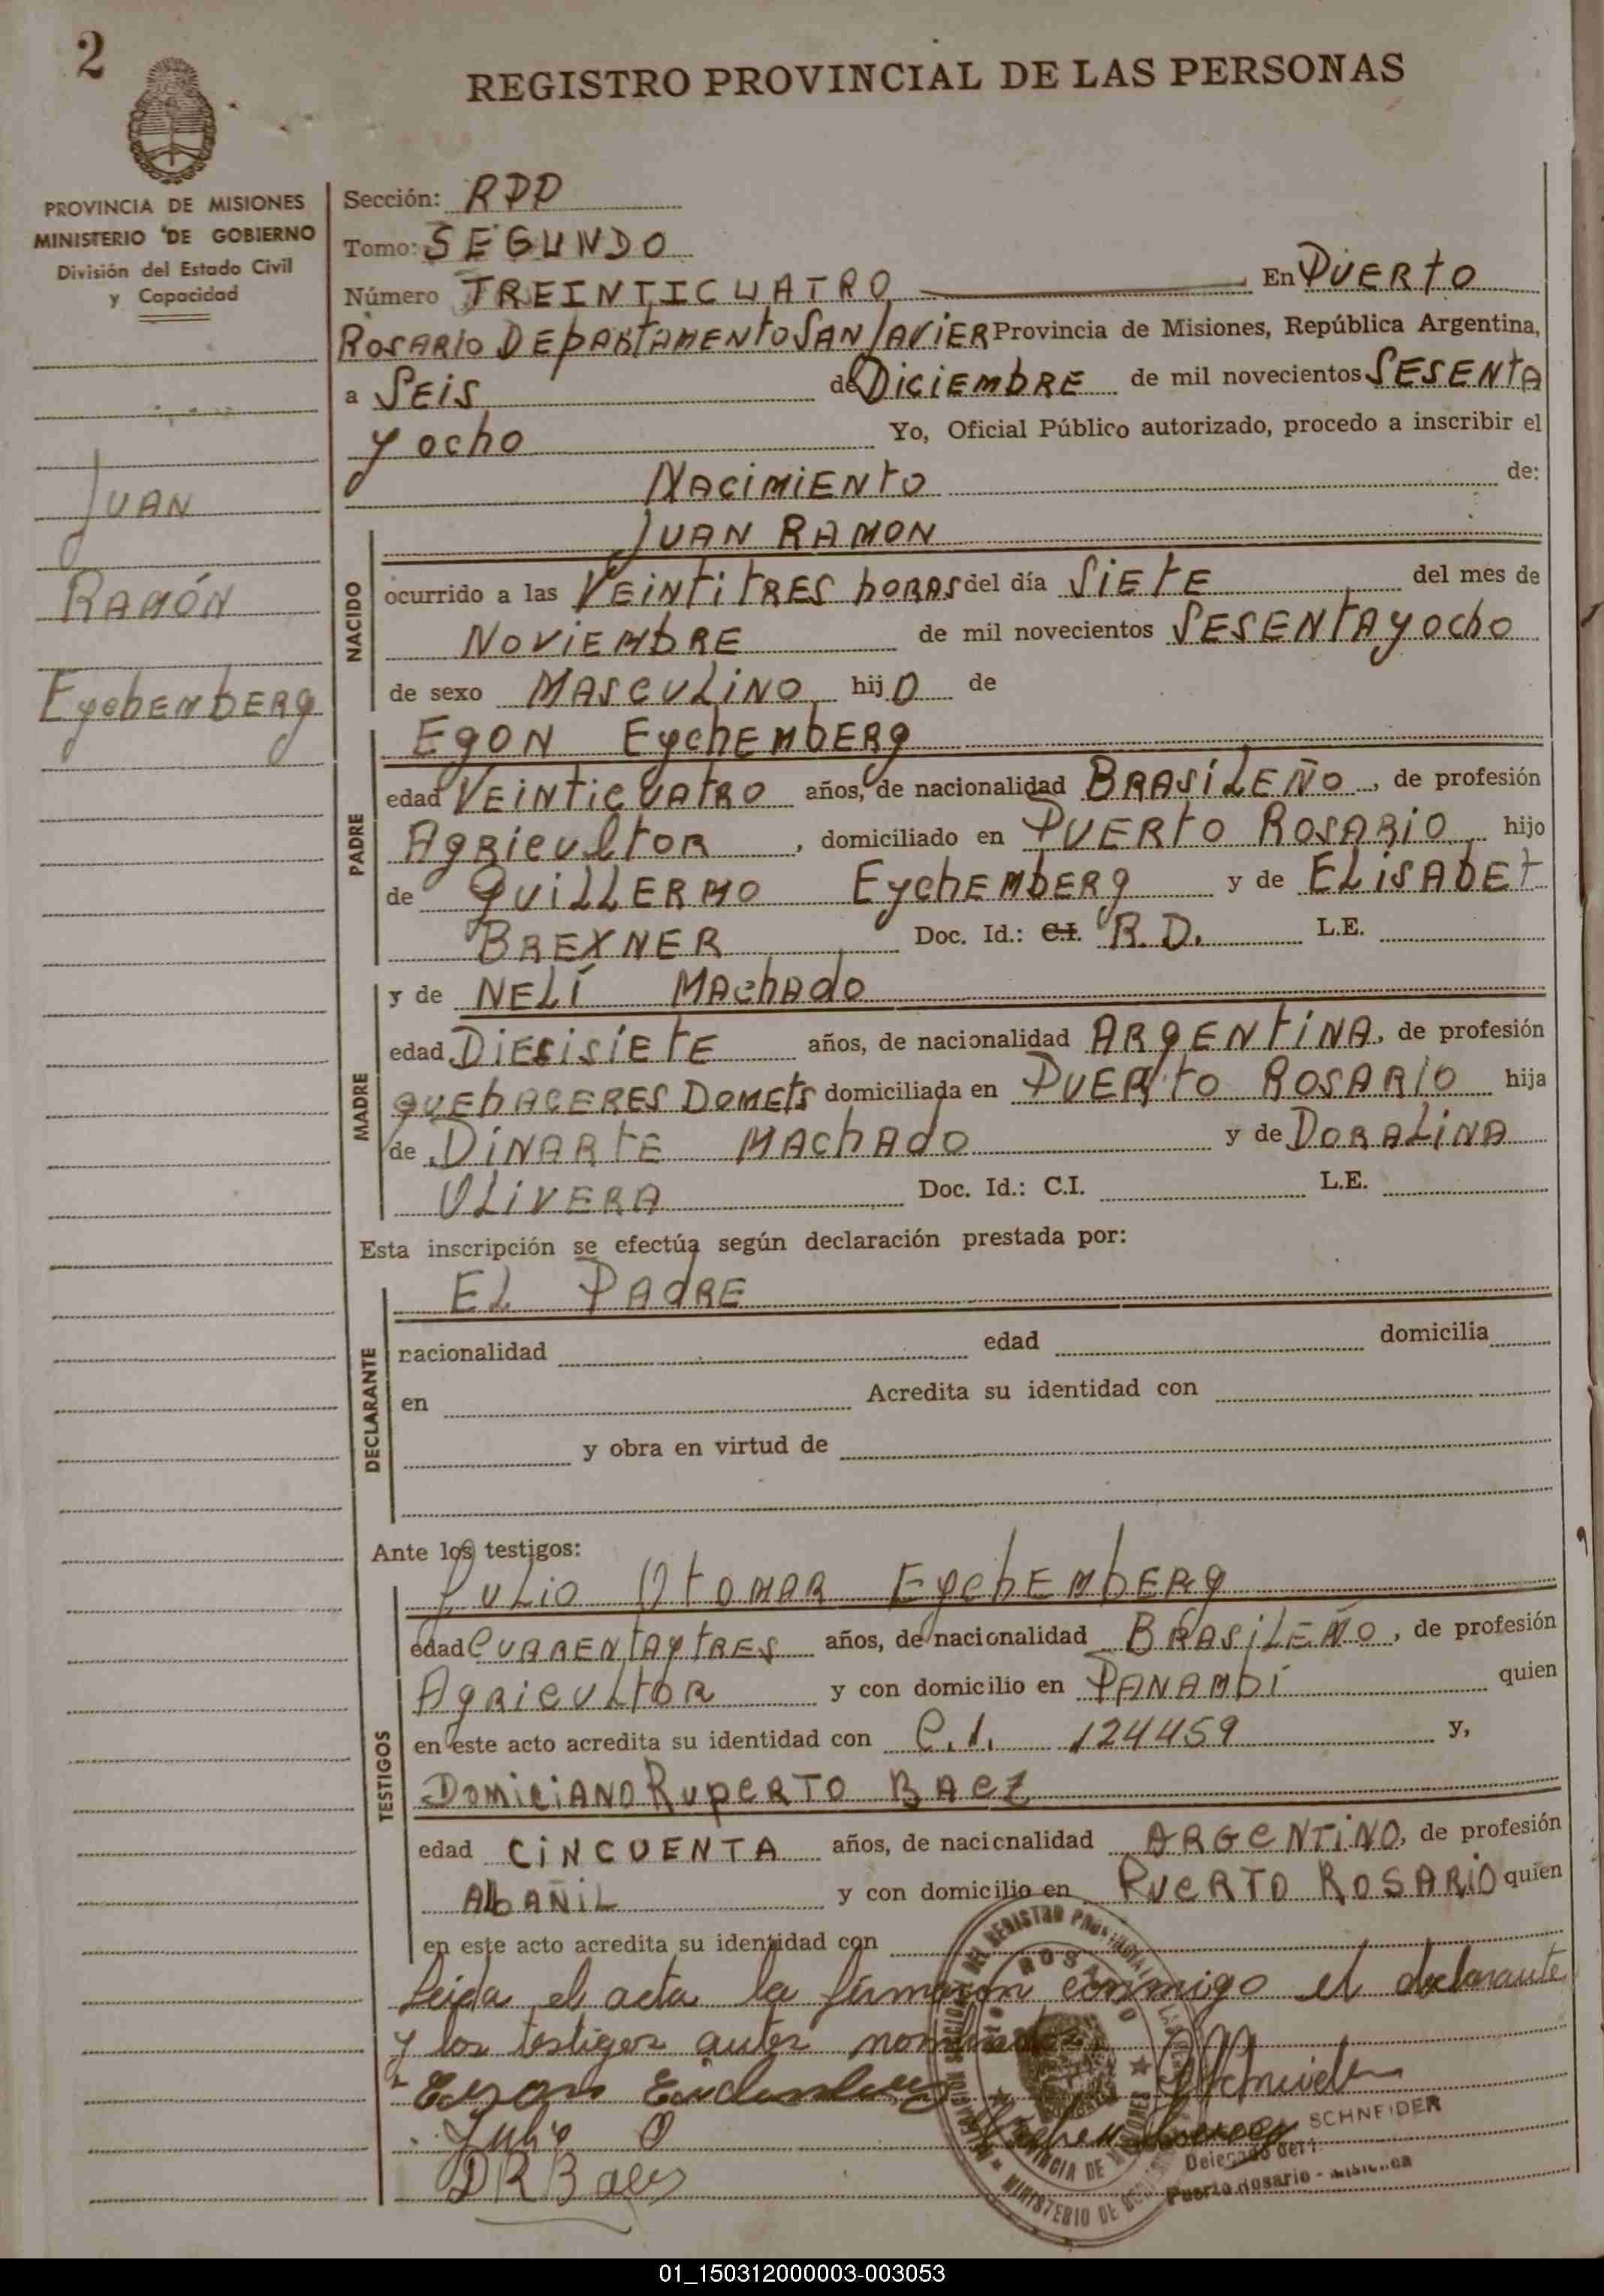 2
REGISTRO PROVINCIAL DE LAS PERSONAS
PROVINCIA DE MISIONES
MINISTERIO DE GOBIERNO
División del Estado Civil
y Capacidad
Juan
Ramón
Eychemberg
Sección: RPP
Tomo: SEGUNDO
Número TREINTICUATRO En Puerto
Rosario Departamento San Javier Provincia de Misiones, República Argentina,
a Seis de Diciembre de mil novecientos Sesenta
y ocho Yo, Oficial Público autorizado, procedo a inscribir el
Nacimiento de:
NACIDO
Juan Ramon
ocurrido a las Veintitres horas del día Siete del mes de
Noviembre de mil novecientos Sesenta y ocho
de sexo Masculino hijo de
PADRE
Egon Eychemberg
edad Veinticuatro años, de nacionalidad Brasileño, de profesión
Agricultor, domiciliado en Puerto Rosario hijo
de Guillermo Eychemberg y de Elisabet
Brexner Doc. Id.: C.I. R.D. L.E.
MADRE
y de Nelí Machado
edad Diecisiete años, de nacionalidad Argentina, de profesión
quehaceres Domets domiciliada en Puerto Rosario hija
de Dinarte Machado y de Doralina
Olivera Doc. Id.: C.I. L.E.
Esta inscripción se efectúa según declaración prestada por:
DECLARANTE
El Padre
nacionalidad edad domicilia
en Acredita su identidad con
y obra en virtud de
Ante los testigos:
TESTIGOS
Julio Otomar Eychemberg
edad Cuarenta y tres años, de nacionalidad Brasileño, de profesión
Agricultor y con domicilio en Panambí quien
en este acto acredita su identidad con C.I. 124459 y,
Domiciano Ruperto Baez
edad Cincuenta años, de nacionalidad Argentino, de profesión
Albañil y con domicilio en Puerto Rosario quien
en este acto acredita su identidad con
Leida el acta la firmaron conmigo el declarante
y los testigos antes
Egon
Julio O
D R Baez
SCHNEIDER
Puerto Rosario - Misiones
01_150312000003-003053